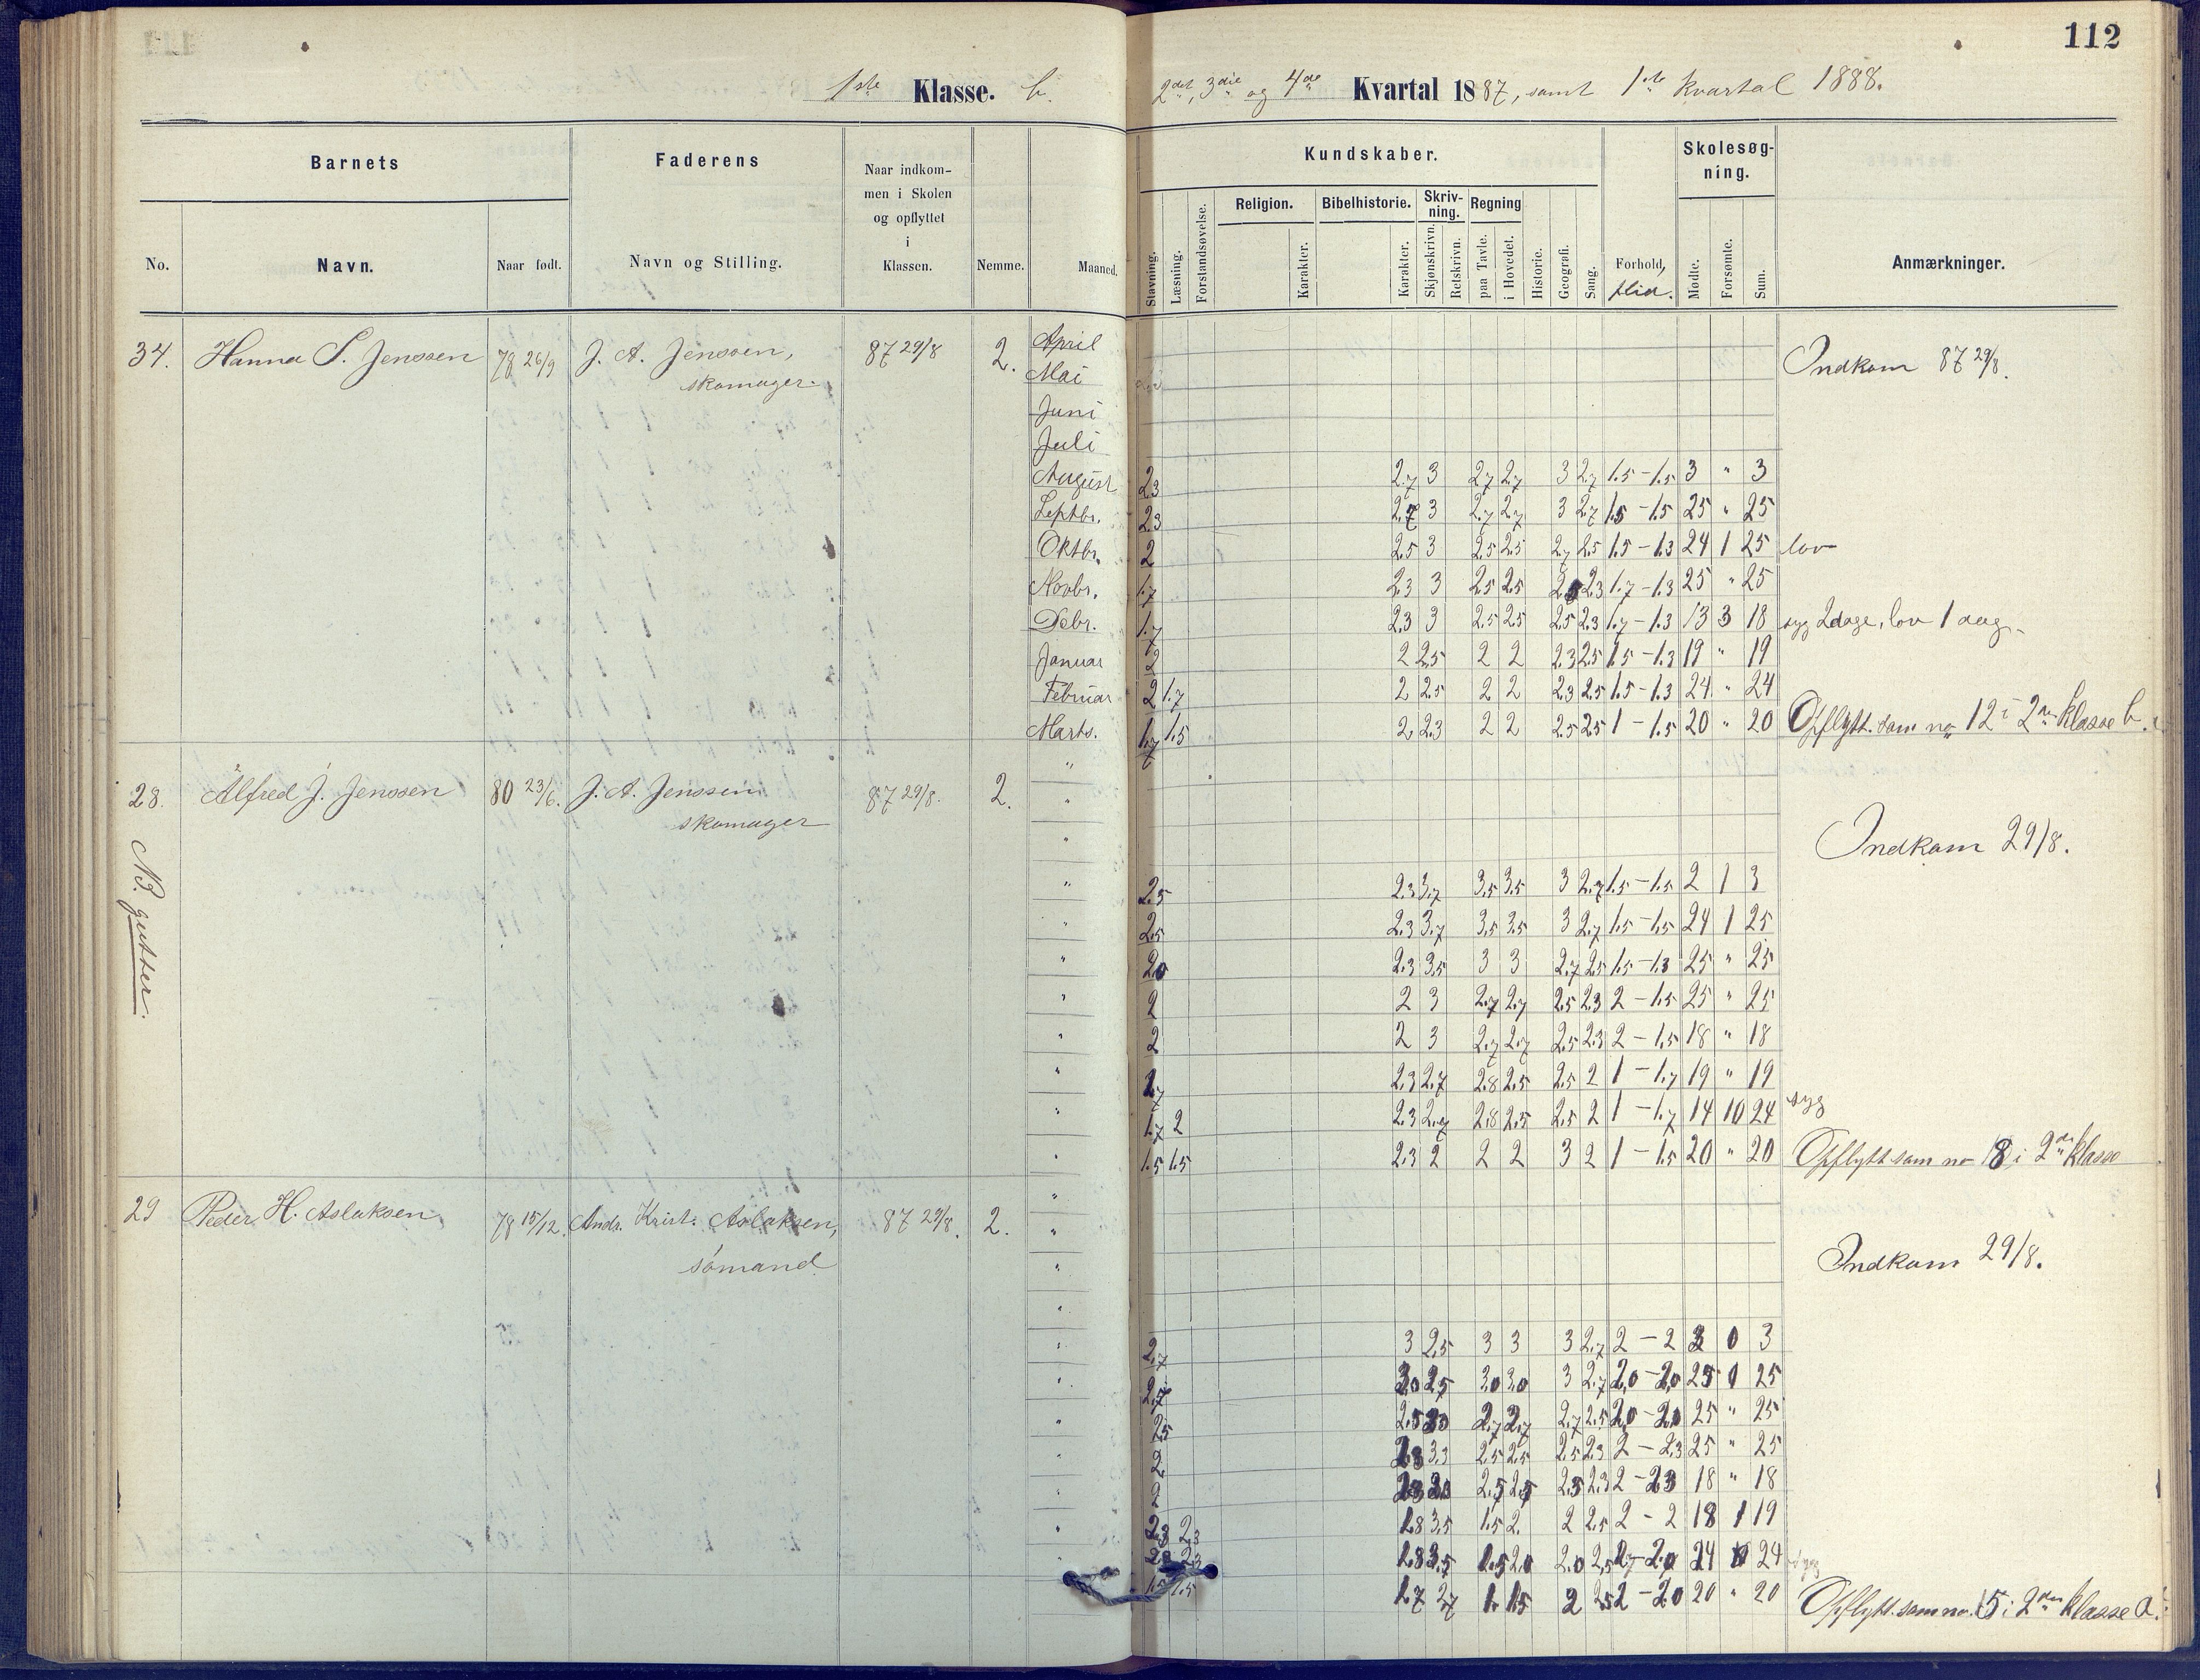 112
1ste Klasse. b.
2det, 3die og 4de Kvartal 1887, samt 1ste Kvartal 1888.
Barnets
Faderens
Naar indkom-
men i Skolen
og opflyttet
i
Klassen.
Kundskaber.
Skolesøg-
ning.
Religion.
Bibelhistorie.
Skriv-
ning.
Regning
No.
Navn.
Naar født.
Navn og Stilling.
Nemme.
Maaned.
Stavning.
Læsning.
Forstandsøvelse.
Karakter.
Karakter.
Skjønskrivn.
Retskrivn.
paa Tavle.
i Hovedet.
Historie.
Geografi.
Sang.
Forhold,
flid.
Mødte.
Forsømte.
Sum.
Anmærkninger.
34. Hanna S. Jenssen 78 26/9 J. A. Jenssen, 87 29/8 2. April Indkom 87 29/8.
skomager. Mai
Juni
Juli
August 2.3 2.7 3 2.7 2.7 3 2.7 1.5 - 1.5 3 " 3
Septbr. 2.3 2.7 3 2.7 2.7 3 2.7 1.5 - 1.5 25 " 25
Oktbr. 2 2.5 3 2.5 2.5 2.7 2.5 1.5 - 1.3 24 1 25 lov
Novbr. 1.7 2.3 3 2.5 2.5 2.3 1.7 - 1.3 25 " 25
Debr. 1.7 2.3 3 2.5 2.5 2.5 2.3 1.7 - 1.3 13 3 18 syg 2 dage, lov 1 dag
Januar 2 2 2.5 2 2 2.3 2.5 1.5 - 1.3 19 " 19
Februar 2 1.7 2 2.5 2 2 2.3 2.5 1.5 - 1.3 24 " 24
Marts. 1.7 1.5 2 2.3 2 2 2.5 2.5 1 - 1.5 20 " 20 Opflytt. som no 12 i 2den Klasse b.
28. Alfred J. Jenssen 80 23/6. J. A. Jenssen 87 29/8. 2. "
skomager
Indkom 29/8.
NB. gutter.
" 2.5 2.3 3.7 3.5 3.5 3 2.7 1.5 - 1.5 2 1 3
" 2.5 2.3 3.7 3.5 3.5 3 2.7 1.5 - 1.5 24 1 25
" 2.0 2.3 3.5 3 3 2.7 2.5 1.5 - 1.3 25 " 25
" 2 2 3 2.7 2.7 2.5 2.3 2 - 1.5 25 " 25
" 2 2 3 2.7 2.7 2.5 2.3 2 - 1.5 18 " 18
" 1.7 2.3 2.7 2.8 2.5 2.5 2 1 - 1.7 19 " 19
" 1.7 2 2.3 2.7 2.8 2.5 2.5 2 1 - 1.7 14 10 24 syg
" 1.5 1.5 2.3 2 2 2 3 2 1 - 1.5 20 " 20 Opflytt som no 18 i 2den Klasse
29 Peder H. Aslaksen 78 15/12. Andr. Krist. Aslaksen, 87 29/8. 2. "
sømand
Indkom 29/8.
" 2.7 3 2.5 3 3 3 2.7 2 - 2 3 0 3
" 2.7 3.0 2.5 3.0 3.0 3 2.7 2.0 - 2.0 25 0 25
" 2.5 2.5 2.7 2.7 2.7 2.5 2.0 - 2.0 25 " 25
" 2 3.3 2.5 2.5 2.5 2.3 2 - 2.3 25 " 25
" 2 2.5 2.5 2.5 2.3 2 - 2.3 18 " 18
" 2.3 1.8 3.5 1.5 2. 2 2.5 2 - 2 18 1 19
2.3 1.8 3.5 1.5 2.0 2.0 2.5 24 24
1.5 1.7 2.7 1.5 2 2.5 2 - 2.0 20 " 20 Opflytt. som no. 15 i 2den Klasse a.